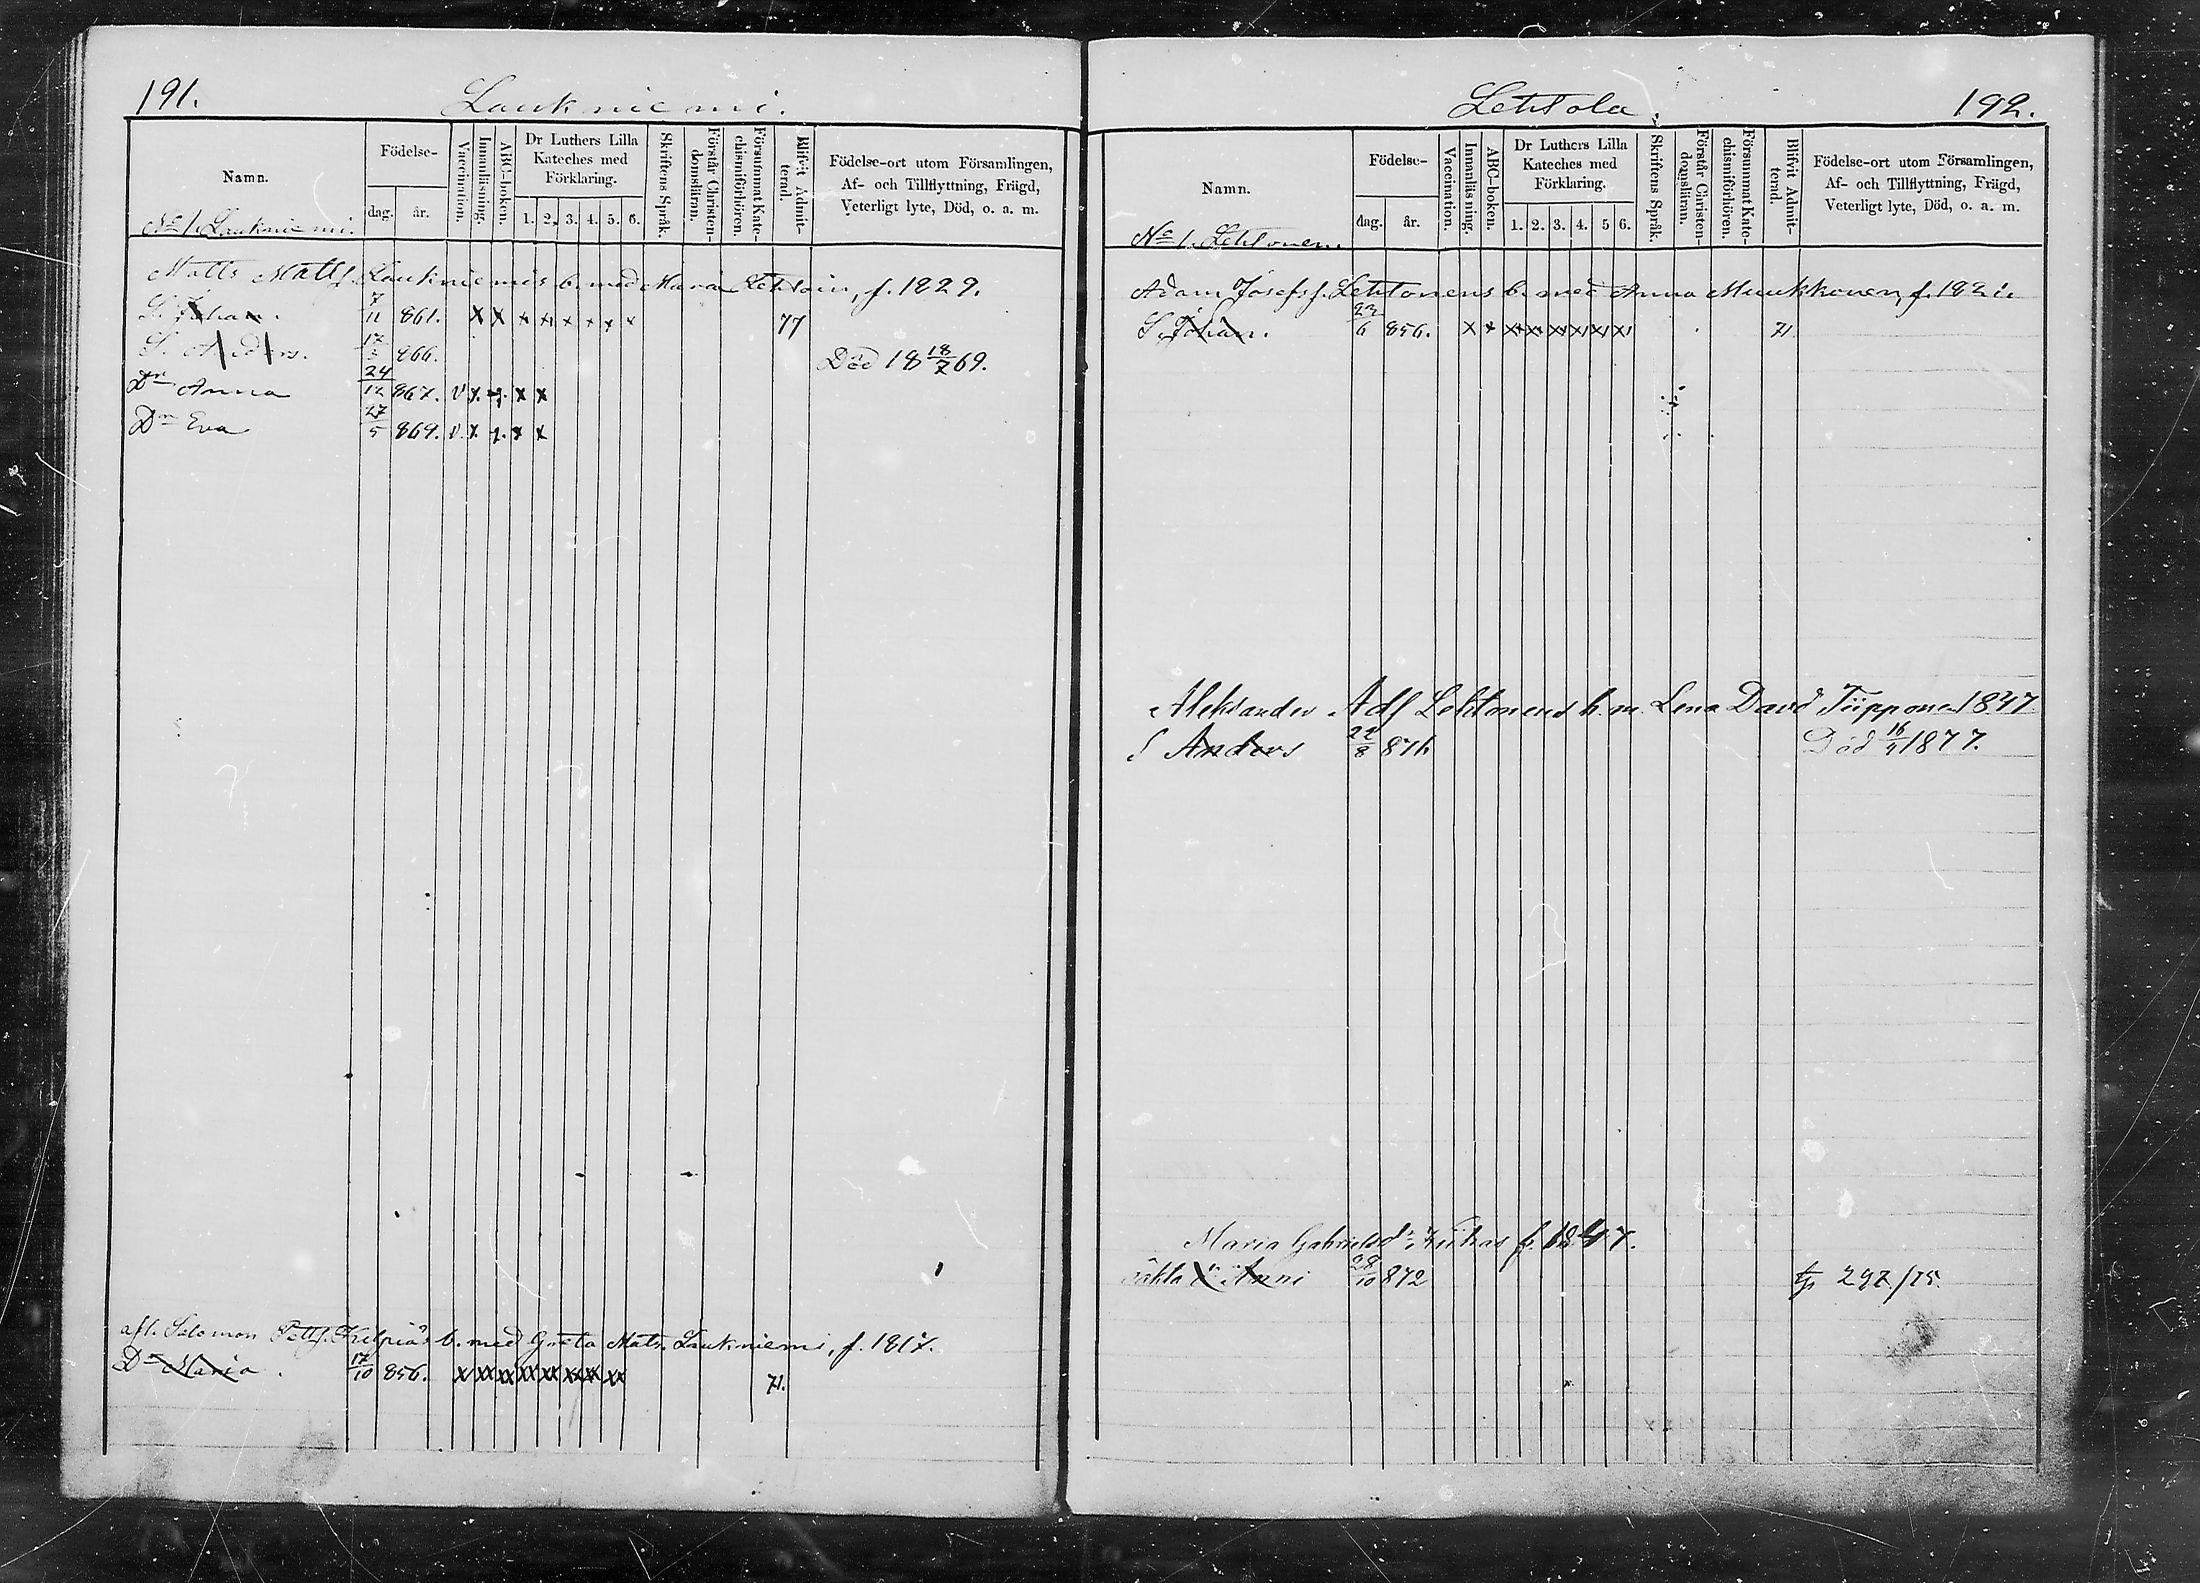 191.
Laukniemi.
Namn.
Födelse-
dag.
år.
Vaccination.
Innanläsning.
ABC-boken.
Dr Luthers Lilla
Kateches med
Förklaring.
1. 2. 3. 4. 5. 6.
Skriftens Språk.
Förstår Christen-
domsläran.
Försummat Kate-
chismiförhören.
Blifvit Admit-
terad.
Födelse-ort utom Församlingen,
Af- och Tillflyttning, Frägd,
Veterligt lyte, Död, o. a. m.
No 1. Laukniemi.
Matts Mattsf. Laukniemis b. med Maria f. 1829.
S. Johan. 7/11 861. x x x x x x x x 77
S. Anders. 17/3 866. Död 18 18/7 69.
Dr Anna 24/12 867. v x x x
Dr Eva 27/5 869. v. x x x
afl. Salomon b. med Greta Matsd. Laukniemi, f. 1817.
Dr Maria. 17/10 856. x xx xx xx xx xx xx xx 71.
Lehtola.
192.
Namn.
Födelse-
dag.
år.
Vaccination.
Innanläsning.
ABC-boken.
Dr Luthers Lilla
Kateches med
Förklaring.
1. 2. 3. 4. 5 6.
Skriftens Språk.
Förstår Christen-
domsläran.
Försummat Kate-
chismiförhören.
Blifvit Admit-
terad.
Födelse-ort utom Församlingen,
Af- och Tillflyttning, Frägd,
Veterligt lyte, Död, o. a. m.
No 1. Lehtonen.
Adam Josefsf. Lehtonens b. med Anna Muukkonen, f.
S. Johan. 23/6 856. x x x x x x x x 71.
Aleksander Adf Lehtonens b. m. Lena David Tiipponen 1847
S Anders 22/8 876 Död 16/4 1877.
Maria Gabrielsdr Kiikas f. 1847.
oäkta dr Anni 28/10 872 297/75.